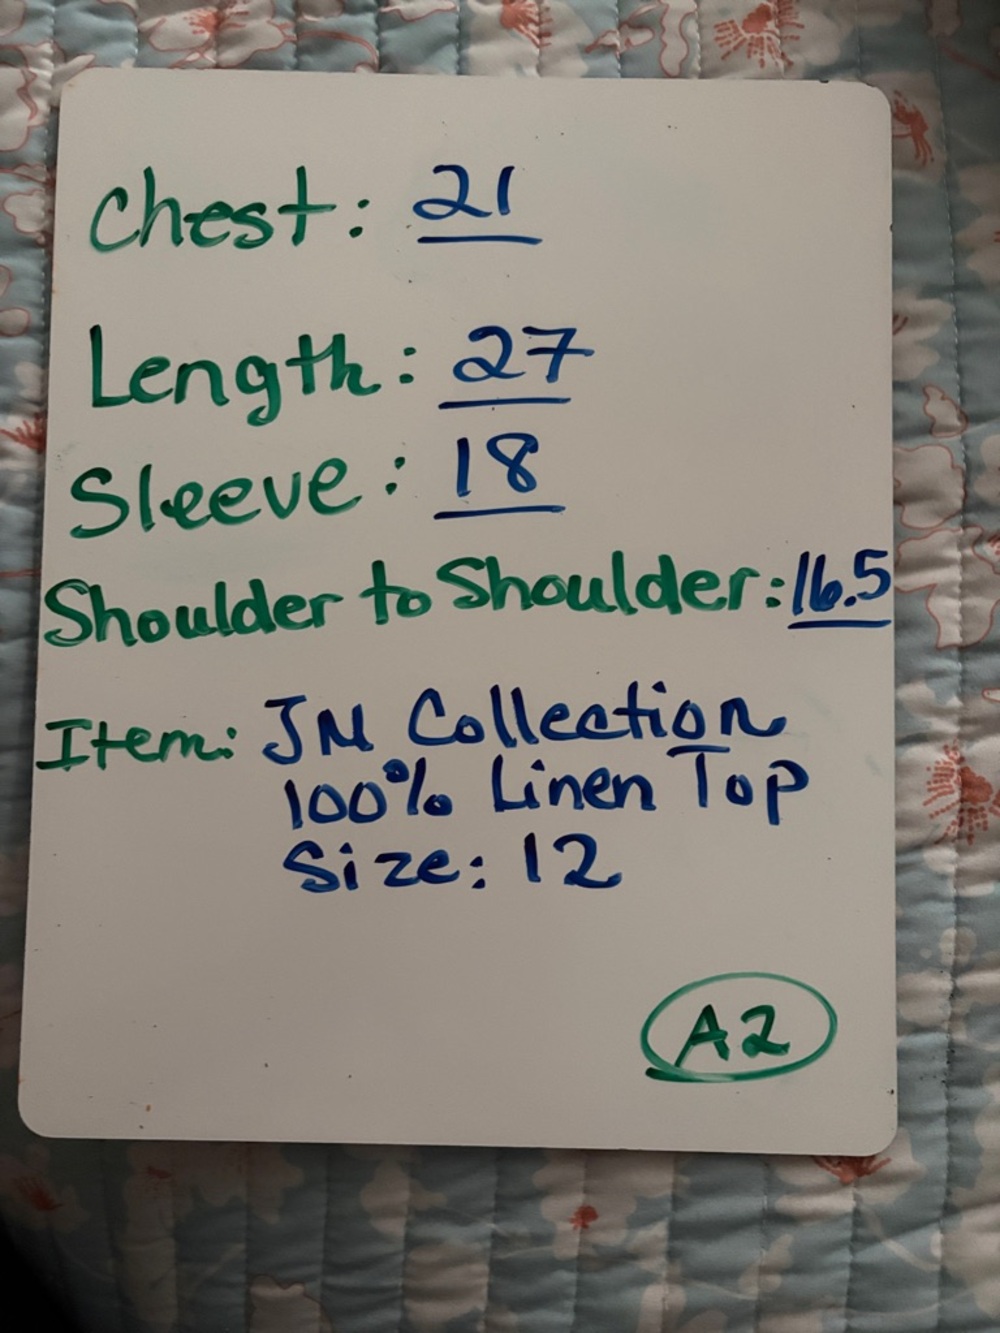 Chest: 21
Length: 27
Sleeve: 18
Shoulder to Shoulder: 16.5
Item: JM Collection
100% Linen Top
Size: 12
A2